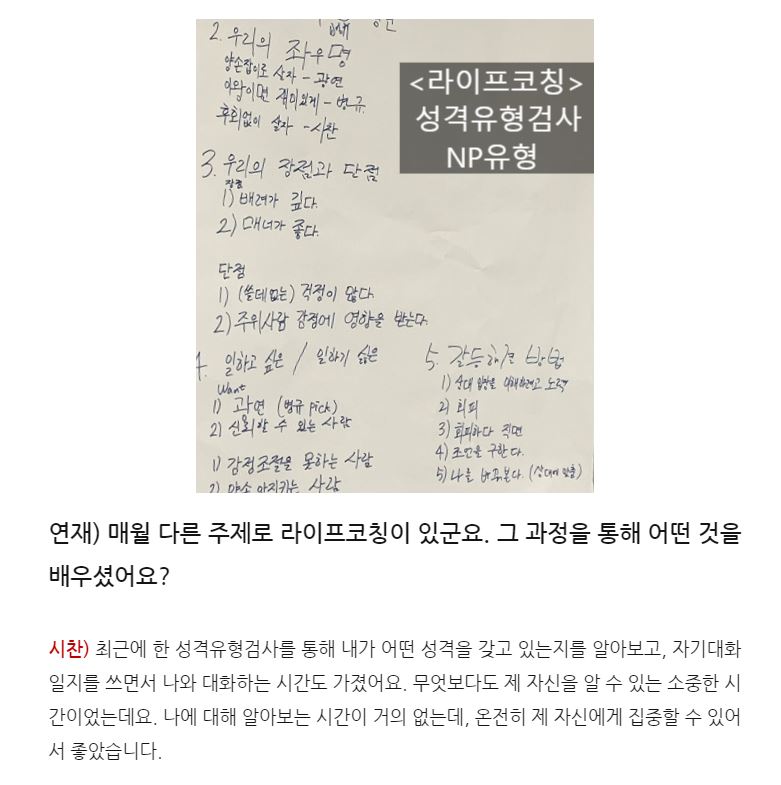 2. 우리의 좌우명
양손잡이로 살자 - 광연
이왕이면 재미있게 - 병규
후회없이 살자 - 시찬
<라이프코칭>
성격유형검사
NP유형
3. 우리의 장점과 단점
장점
1) 배려가 깊다.
2) 매너가 좋다.
단점
1) (쓸데없는) 걱정이 많다.
2) 주위사람 감정에 영향을 받는다.
4. 일하고 싶은 / 일하기 싫은
Want
1) 광연 (병규 pick)
2) 신뢰할 수 있는 사람
1) 감정조절을 못하는 사람
2) 약속 안지키는 사람
5. 갈등해결 방법
1) 상대 입장을 이해하려고 노력
2) 회피
3) 회피하다 직면
4) 조언을 구한다.
5) 나를 바꿔본다. (상대에 맞춤)
연재) 매월 다른 주제로 라이프코칭이 있군요. 그 과정을 통해 어떤 것을
배우셨어요?
시찬) 최근에 한 성격유형검사를 통해 내가 어떤 성격을 갖고 있는지를 알아보고, 자기대화
일지를 쓰면서 나와 대화하는 시간도 가졌어요. 무엇보다도 제 자신을 알 수 있는 소중한 시
간이었는데요. 나에 대해 알아보는 시간이 거의 없는데, 온전히 제 자신에게 집중할 수 있어
서 좋았습니다.